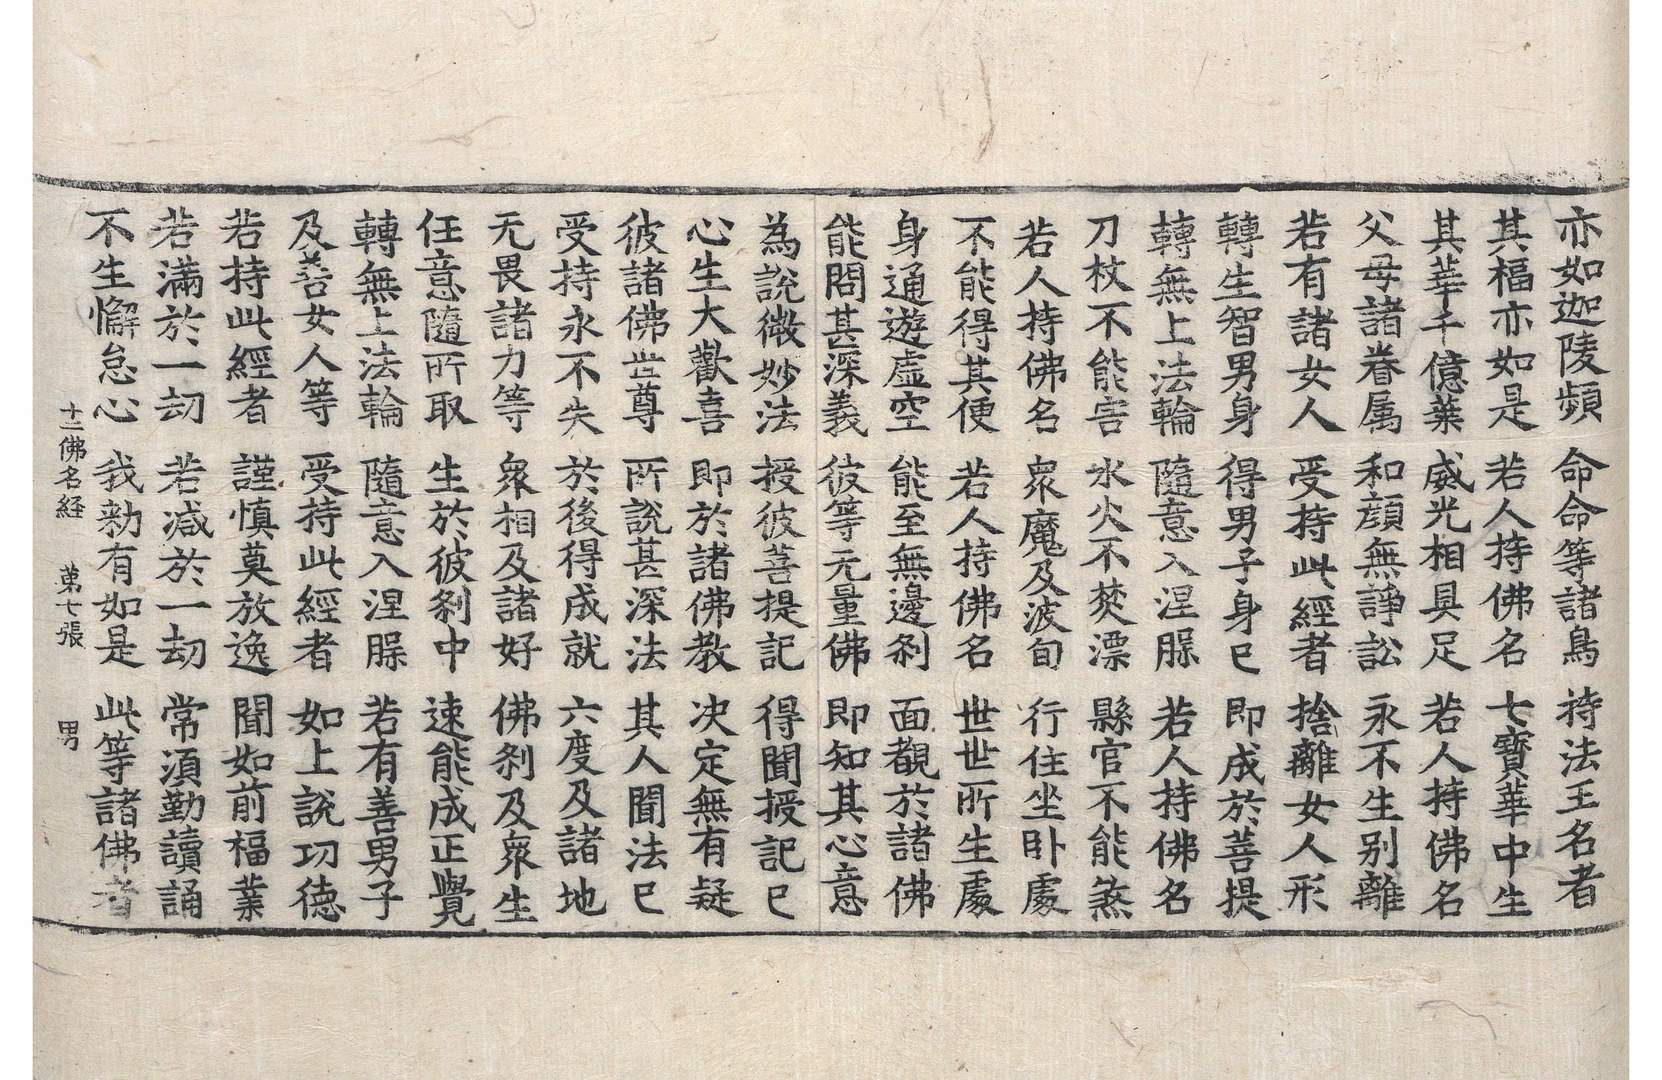 亦如迦陵頻 命命等諸鳥 持法王名者
其福亦如是 若人持佛名 七寶華中生
其華千億葉 威光相具足 若人持佛名
父母諸眷属 和顔無諍訟 永不生别離
若有諸女人 受持此經者 捨離女人形
轉生智男身 得男子身已 即成於菩提
轉無上法輪 隨意入涅槃 若人持佛名
刀杖不能害 水火不焚漂 縣官不能煞
若人持佛名 衆魔及波旬 行住坐卧處
不能得其便 若人持佛名 世世所生處
身通遊虚空 能至無邊刹 面覩於諸佛
能問甚深義 彼等无量佛 即知其心意
為説微妙法 授彼菩提記 得聞授記已
心生大歡喜 即於諸佛教 决定無有疑
彼諸佛世尊 所説甚深法 其人聞法已
受持永不失 於後得成就 六度及諸地
无畏諸力等 衆相及諸好 佛刹及衆生
任意隨所取 生於彼刹中 速能成正覺
轉無上法輪 隨意入涅槃 若有善男子
及善女人等 受持此經者 如上説功德
若持此經者 謹慎莫放逸 聞如前福業
若滿於一劫 若减於一劫 常須勤讀誦
不生懈怠心 我勑有如是 此等諸佛者
十二佛名経 苐七張 男